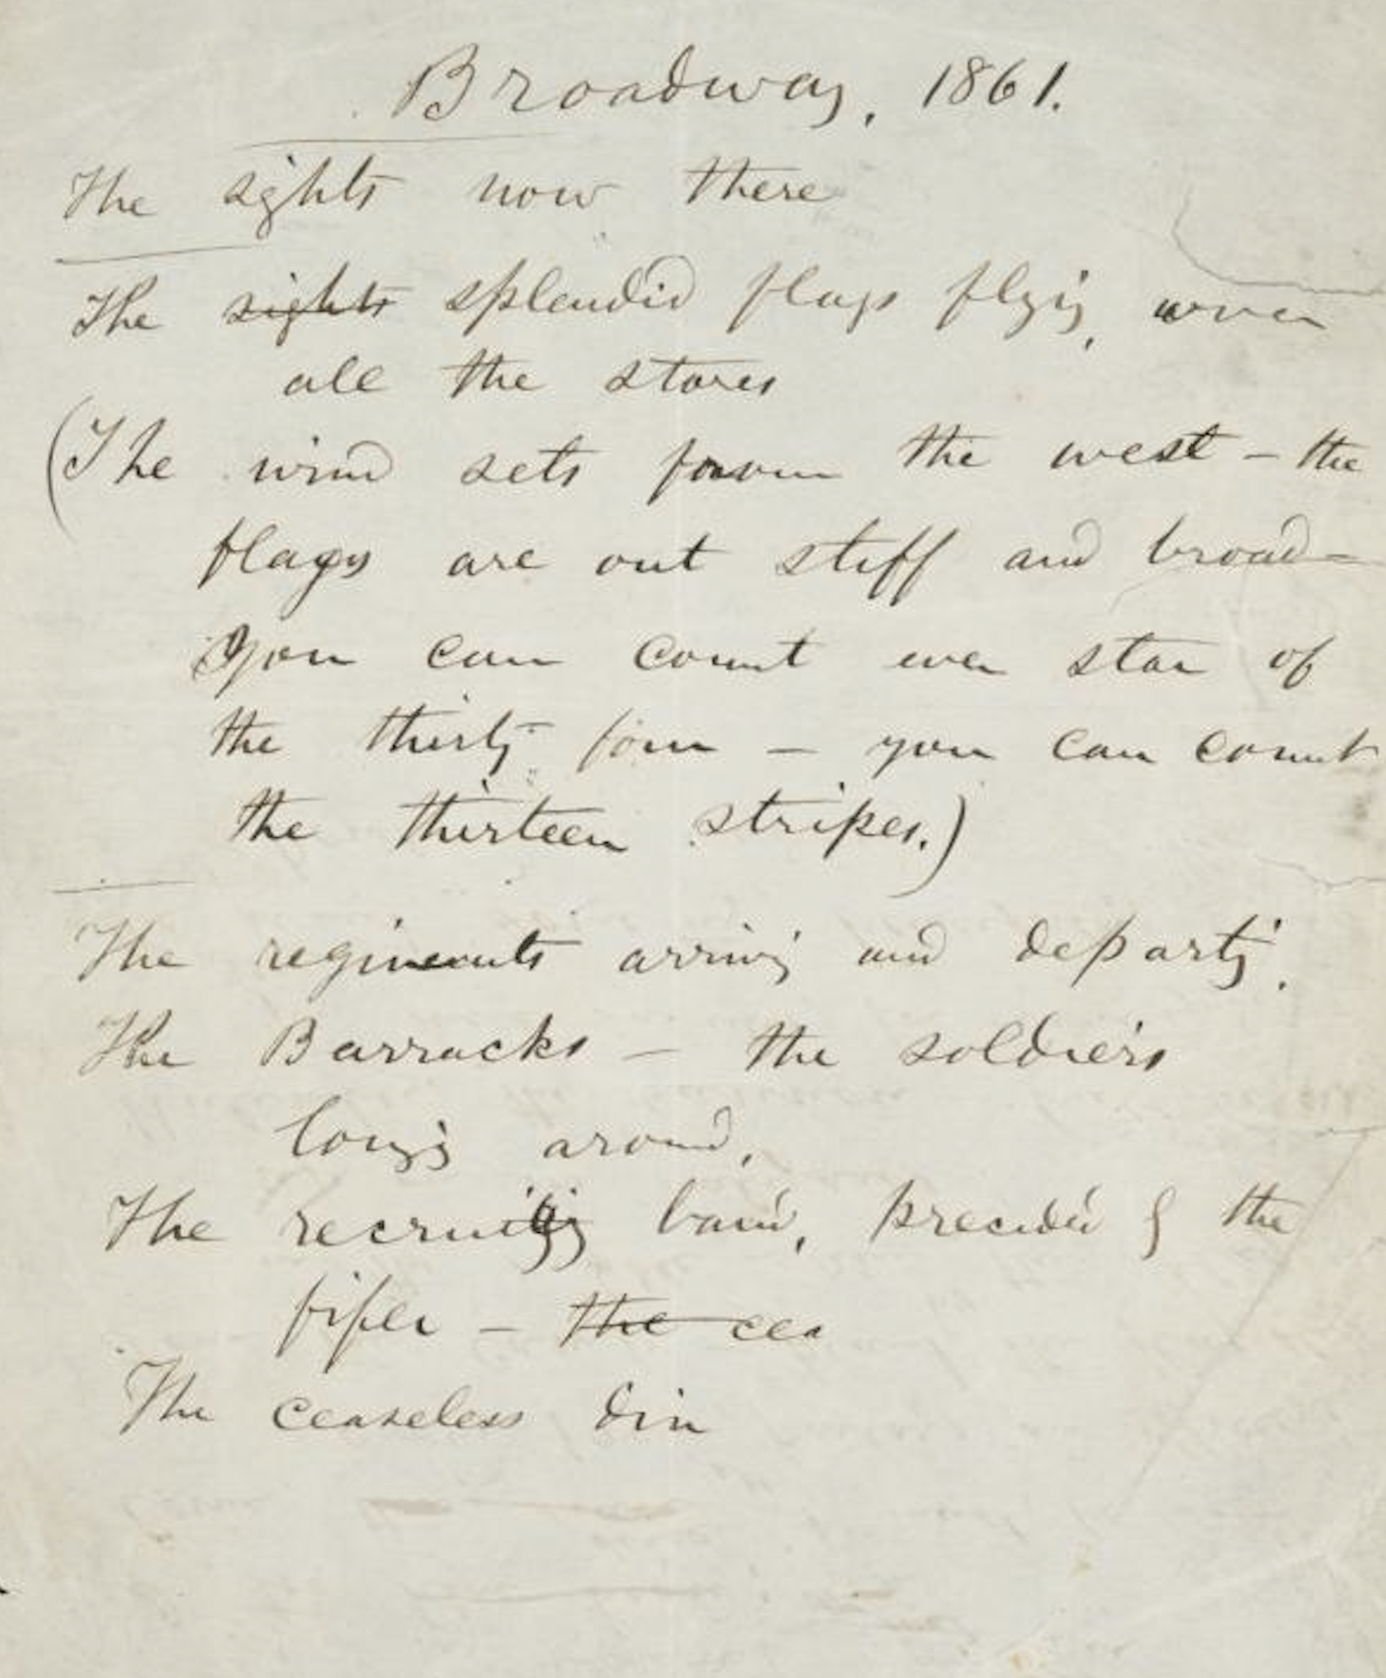 Broadway, 1861.
The sights now there
The sights splendid flags flying over
all the stores
(The wind sets from the west – the
flags are out stiff and broad –
you can count every star of
the thirty-four – you can count
the thirteen stripes.)
The regiments arriving and departing.
The Barracks – the soldiers
lounging around,
The recruiting band, preceded by the
fifer – the cea
The ceaseless din